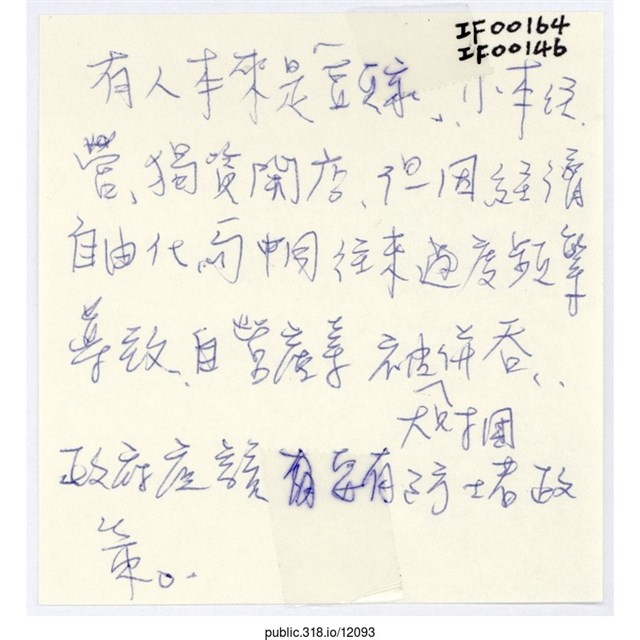 IF00164
IF00146
有人本來是頭家、小本經
營、獨資開店、但因經濟
自由化、而中國往來過度頻繁
導致自營產業被併吞、
大財團
政府應該要有防堵政
策。
public.318.io/12093